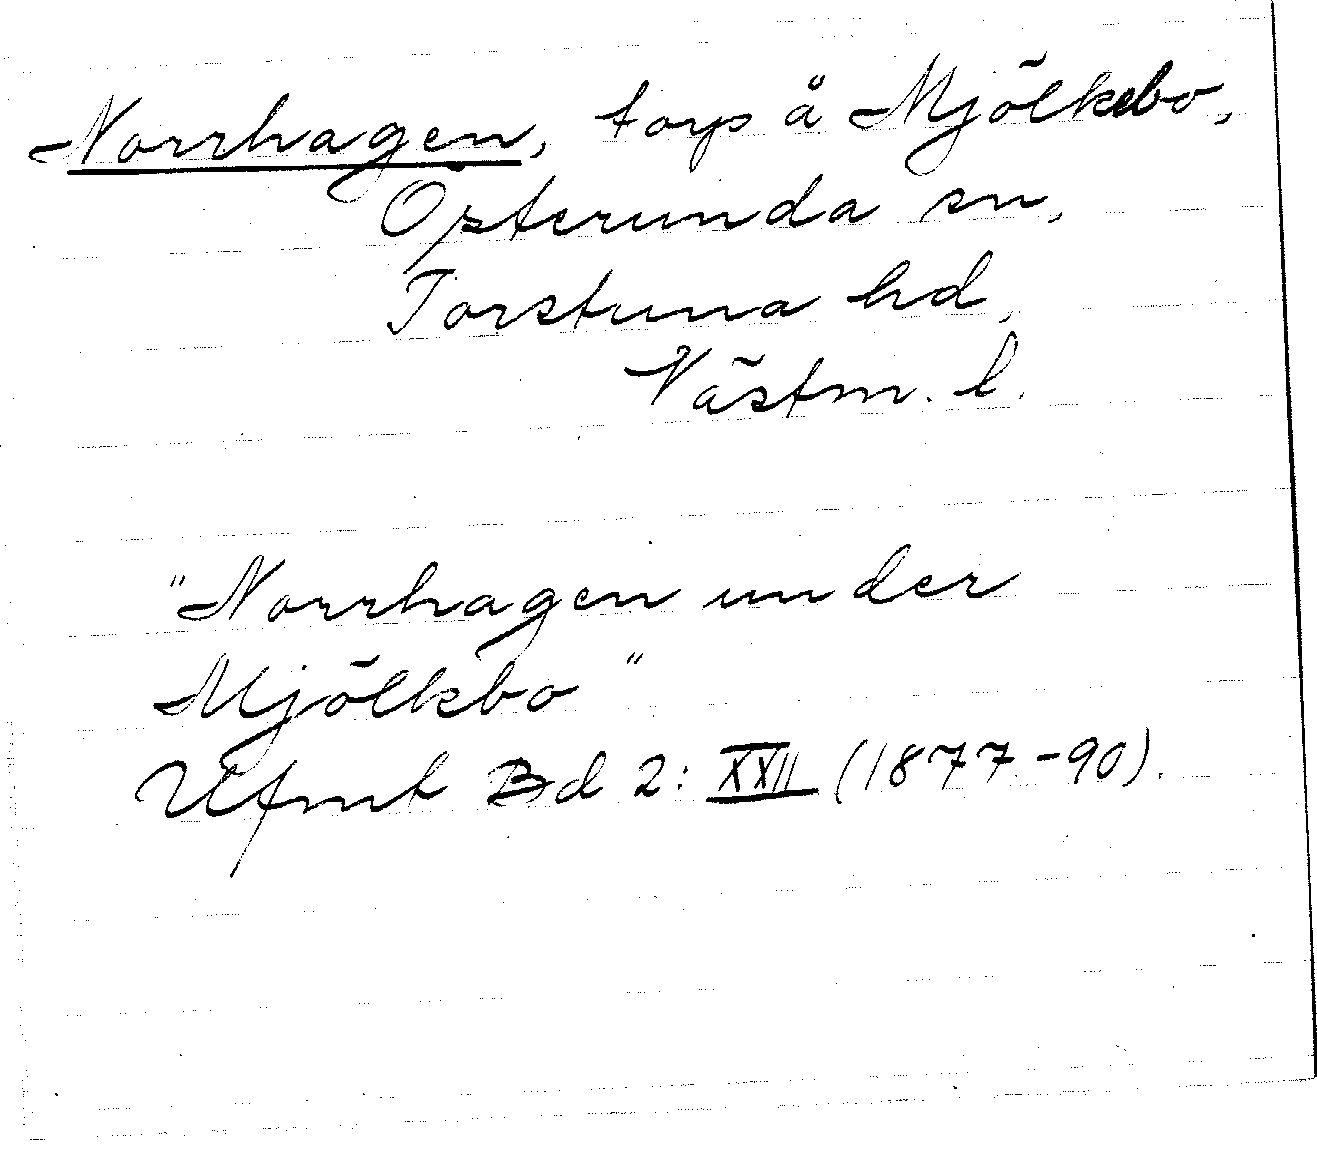 Norrhagen, torp å Mjölkebo,
Österunda sn,
Torstuna hd,
Västm. l.
"Norrhagen under
Mjölkbo"
Ufmt Bd 2: XXII (1877-90).